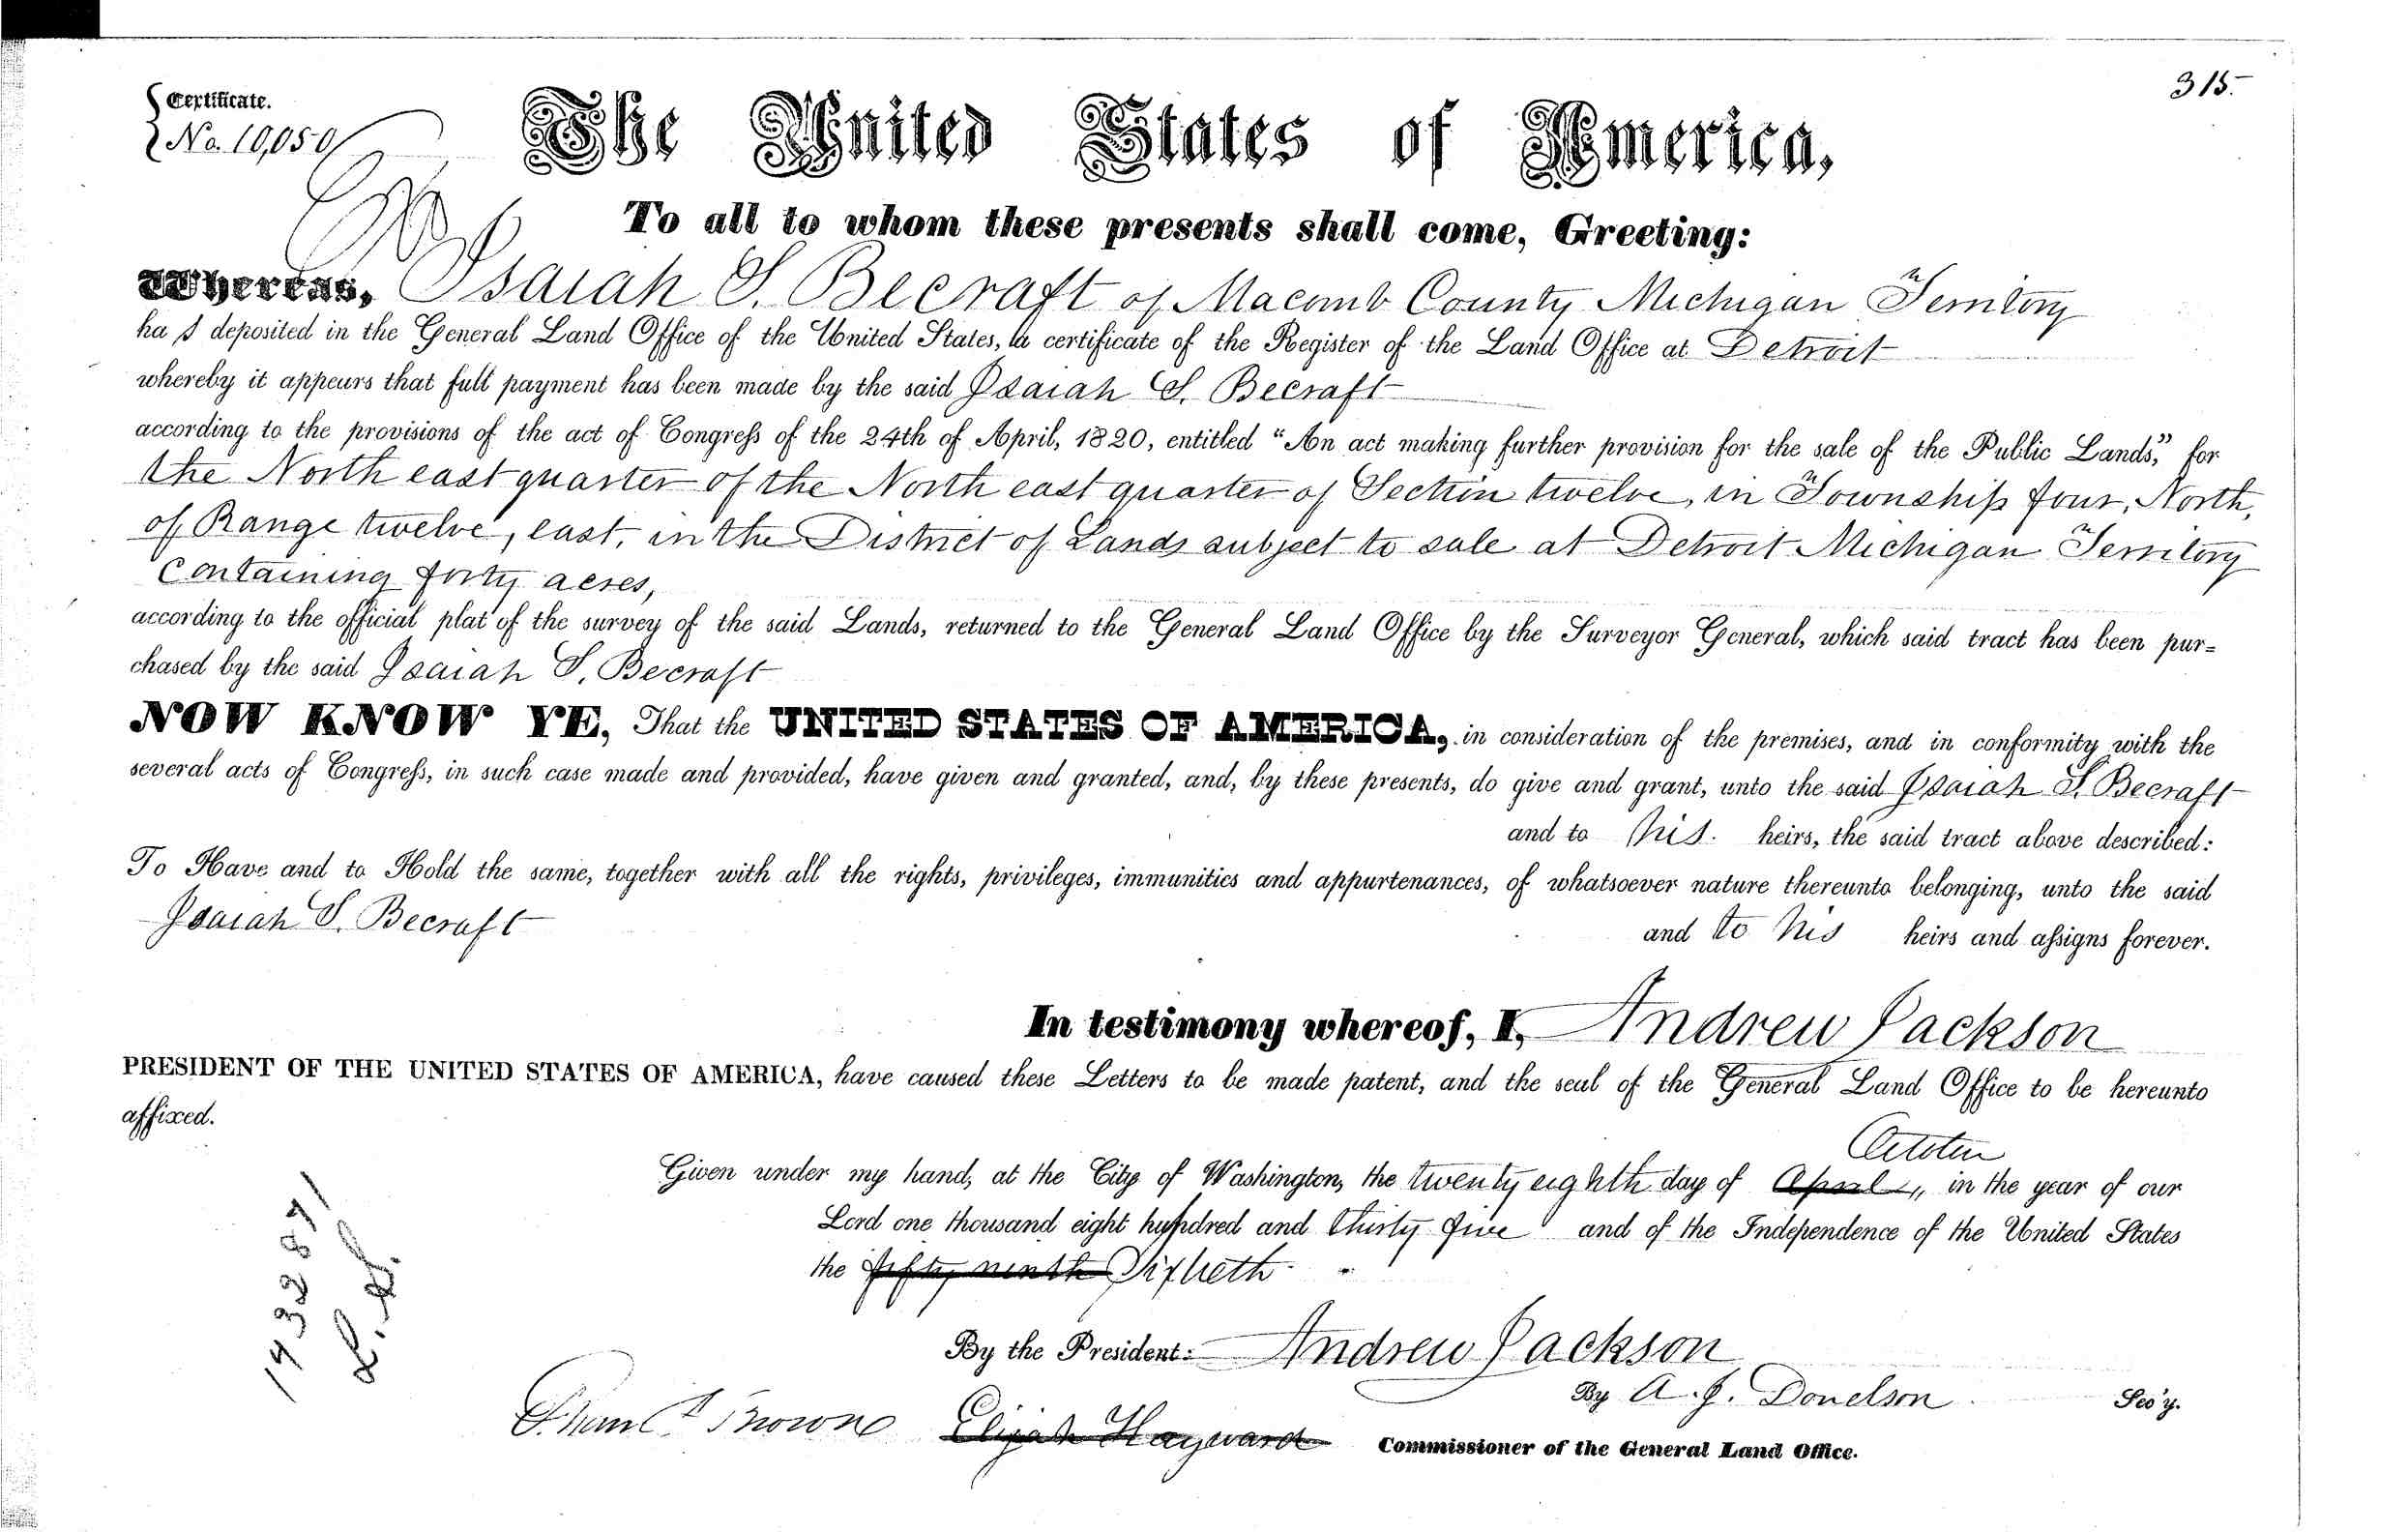 315
Certificate.
No. 10,050
The United States of America,
To all to whom these presents shall come, Greeting:
Whereas, Isaiah S. Becraft of Macomb County Michigan Territory
ha s deposited in the General Land Office of the United States, a certificate of the Register of the Land Office at Detroit
whereby it appears that full payment has been made by the said Isaiah S. Becraft
according to the provisions of the act of Congress of the 24th of April, 1820, entitled "An act making further provision for the sale of the Public Lands," for
the North east quarter of the North east quarter of Section twelve, in Township four, North,
of Range twelve, east, in the District of Lands subject to sale at Detroit Michigan Territory
Containing forty acres,
according to the official plat of the survey of the said Lands, returned to the General Land Office by the Surveyor General, which said tract has been pur=
chased by the said Isaiah S. Becraft
NOW KNOW YE, That the UNITED STATES OF AMERICA, in consideration of the premises, and in conformity with the
several acts of Congress, in such case made and provided, have given and granted, and, by these presents, do give and grant, unto the said Isaiah S. Becraft
and to his heirs, the said tract above described:
To Have and to Hold the same, together with all the rights, privileges, immunities and appurtenances, of whatsoever nature thereunto belonging, unto the said
Isaiah S. Becraft and to his heirs and assigns forever.
In testimony whereof, I, Andrew Jackson
PRESIDENT OF THE UNITED STATES OF AMERICA, have caused these Letters to be made patent, and the seal of the General Land Office to be hereunto
affixed.
October
Given under my hand, at the City of Washington, the twenty eighth day of April, in the year of our
Lord one thousand eight hundred and thirty five and of the Independence of the United States
the fifty ninth Sixtieth
By the President: Andrew Jackson
By A. J. Donelson Sec'y.
Brown Elijah Hayward Commissioner of the General Land Office.
L.S.